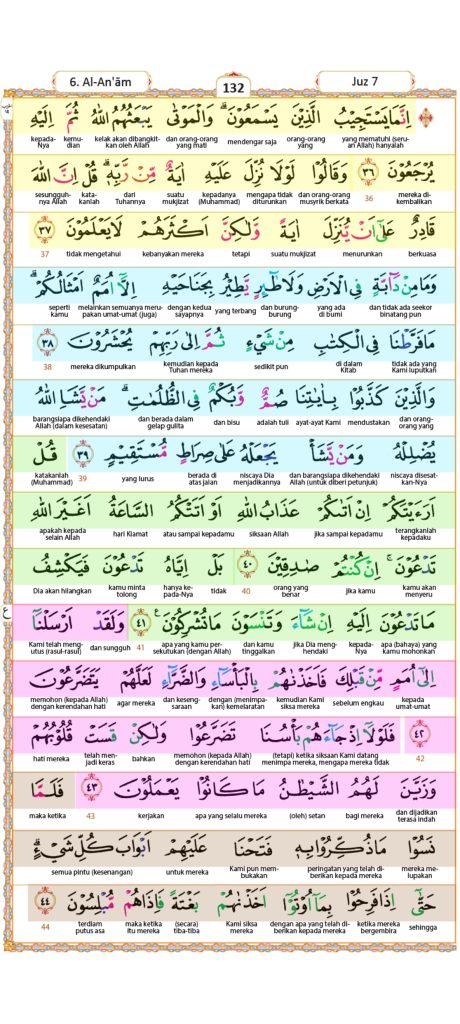 6. Al-An'ām
132
Juz 7
اِنَّمَا يَسْتَجِيْبُ الَّذِيْنَ يَسْمَعُوْنَ ۗوَالْمَوْتٰى يَبْعَثُهُمُ اللّٰهُ ثُمَّ اِلَيْهِ
yang mematuhi (seruan Allah) hanyalah orang-orang yang mendengar saja dan orang-orang yang mati kelak akan dibangkitkan oleh Allah kemudian kepada-Nya
يُرْجَعُوْنَ ٣٦ وَقَالُوْا لَوْلَا نُزِّلَ عَلَيْهِ اٰيَةٌ مِّنْ رَّبِّهٖۗ قُلْ اِنَّ اللّٰهَ
mereka dikembalikan 36 dan orang-orang musyrik berkata mengapa tidak diturunkan kepadanya (Muhammad) suatu mukjizat dari Tuhannya katakanlah sesungguhnya Allah
قَادِرٌ عَلٰٓى اَنْ يُّنَزِّلَ اٰيَةً وَّلٰكِنَّ اَكْثَرَهُمْ لَا يَعْلَمُوْنَ ٣٧
berkuasa menurunkan suatu mukjizat tetapi kebanyakan mereka tidak mengetahui 37
وَمَا مِنْ دَاۤبَّةٍ فِى الْاَرْضِ وَلَا طٰۤىِٕرٍ يَّطِيْرُ بِجَنَاحَيْهِ اِلَّآ اُمَمٌ اَمْثَالُكُمْ ۗ
dan tidak ada seekor binatang pun yang ada di bumi dan burung-burung yang terbang dengan kedua sayapnya melainkan semuanya merupakan umat-umat (juga) seperti kamu
مَا فَرَّطْنَا فِى الْكِتٰبِ مِنْ شَيْءٍ ثُمَّ اِلٰى رَبِّهِمْ يُحْشَرُوْنَ ٣٨
tidak ada yang Kami luputkan di dalam Kitab sedikit pun kemudian kepada Tuhan mereka mereka dikumpulkan 38
وَالَّذِيْنَ كَذَّبُوْا بِاٰيٰتِنَا صُمٌّ وَّبُكْمٌ فِى الظُّلُمٰتِۗ مَنْ يَّشَاِ اللّٰهُ
dan orang-orang yang mendustakan ayat-ayat Kami adalah tuli dan bisu dan berada dalam gelap gulita barangsiapa dikehendaki Allah (dalam kesesatan)
يُضْلِلْهُ وَمَنْ يَّشَأْ يَجْعَلْهُ عَلٰى صِرَاطٍ مُّسْتَقِيْمٍ ٣٩ قُلْ
niscaya disesatkan-Nya dan barangsiapa dikehendaki Allah (untuk diberi petunjuk) niscaya Dia menjadikannya berada di atas jalan yang lurus 39 katakanlah (Muhammad)
اَرَءَيْتَكُمْ اِنْ اَتٰىكُمْ عَذَابُ اللّٰهِ اَوْ اَتَتْكُمُ السَّاعَةُ اَغَيْرَ اللّٰهِ
terangkanlah kepadaku jika sampai kepadamu siksaan Allah atau sampai kepadamu hari Kiamat apakah kepada selain Allah
تَدْعُوْنَۚ اِنْ كُنْتُمْ صٰدِقِيْنَ ٤٠ بَلْ اِيَّاهُ تَدْعُوْنَ فَيَكْشِفُ
kamu akan menyeru jika kamu orang yang benar 40 tidak hanya kepada-Nya kamu minta tolong Dia akan hilangkan
مَا تَدْعُوْنَ اِلَيْهِ اِنْ شَاۤءَ وَتَنْسَوْنَ مَا تُشْرِكُوْنَ ٤١ وَلَقَدْ اَرْسَلْنَآ
apa (bahaya) yang kamu mohonkan kepada-Nya jika Dia menghendaki dan kamu tinggalkan apa yang kamu persekutukan (dengan Allah) 41 dan sungguh Kami telah mengutus (rasul-rasul)
اِلٰٓى اُمَمٍ مِّنْ قَبْلِكَ فَاَخَذْنٰهُمْ بِالْبَأْسَاۤءِ وَالضَّرَّاۤءِ لَعَلَّهُمْ يَتَضَرَّعُوْنَ
kepada umat-umat sebelum engkau kemudian Kami siksa mereka dengan (menimpakan) kemelaratan dan kesengsaraan agar mereka memohon (kepada Allah) dengan kerendahan hati
٤٢ فَلَوْلَآ اِذْ جَاۤءَهُمْ بَأْسُنَا تَضَرَّعُوْا وَلٰكِنْ قَسَتْ قُلُوْبُهُمْ
42 (tetapi) ketika siksaan Kami datang menimpa mereka, mengapa tidak memohon (kepada Allah) dengan kerendahan hati bahkan telah menjadi keras hati mereka
وَزَيَّنَ لَهُمُ الشَّيْطٰنُ مَا كَانُوْا يَعْمَلُوْنَ ٤٣ فَلَمَّا
dan dijadikan terasa indah bagi mereka (oleh) setan apa yang selalu mereka kerjakan 43 maka ketika
نَسُوْا مَا ذُكِّرُوْا بِهٖ فَتَحْنَا عَلَيْهِمْ اَبْوَابَ كُلِّ شَيْءٍۗ
mereka melupakan peringatan yang telah diberikan kepada mereka Kami pun membukakan untuk mereka semua pintu (kesenangan)
حَتّٰٓى اِذَا فَرِحُوْا بِمَآ اُوْتُوْٓا اَخَذْنٰهُمْ بَغْتَةً فَاِذَا هُمْ مُّبْلِسُوْنَ ٤٤
sehingga ketika mereka bergembira dengan apa yang telah diberikan kepada mereka Kami siksa mereka (secara) tiba-tiba maka ketika itu mereka terdiam putus asa 44